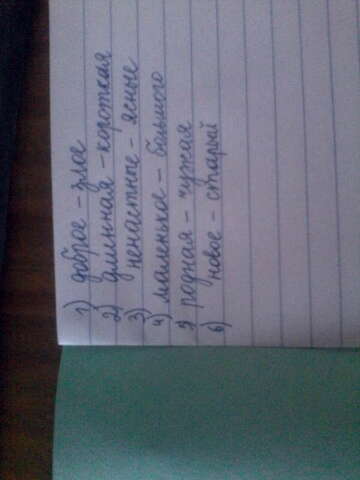 1) доброе - злое
2) длинная - короткая
3) ненастные - ясные
4) маленькое - большого
5 родная - чужая
6) новое - старый